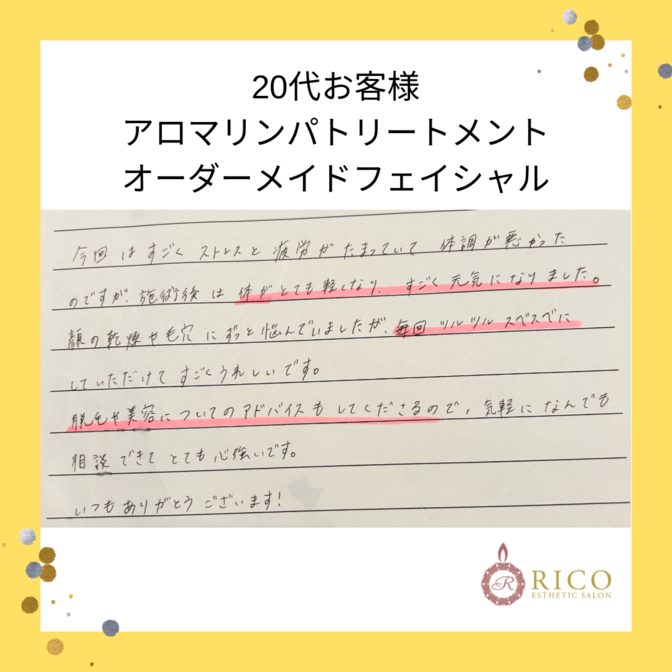 20代お客様
アロマリンパトリートメント
オーダーメイドフェイシャル
今回はすごくストレスと疲労がたまっていて体調が悪かった
のですが、施術後は体がとても軽くなり、すごく元気になりました。
顔の乾燥や毛穴にずっと悩んでいましたが、毎回ツルツルスベスベに
していただけてすごくうれしいです。
脱毛や美容についてのアドバイスもしてくださるので、気軽になんでも
相談できてとても心強いです。
いつもありがとうございます!
R
RICO
ESTHETIC SALON